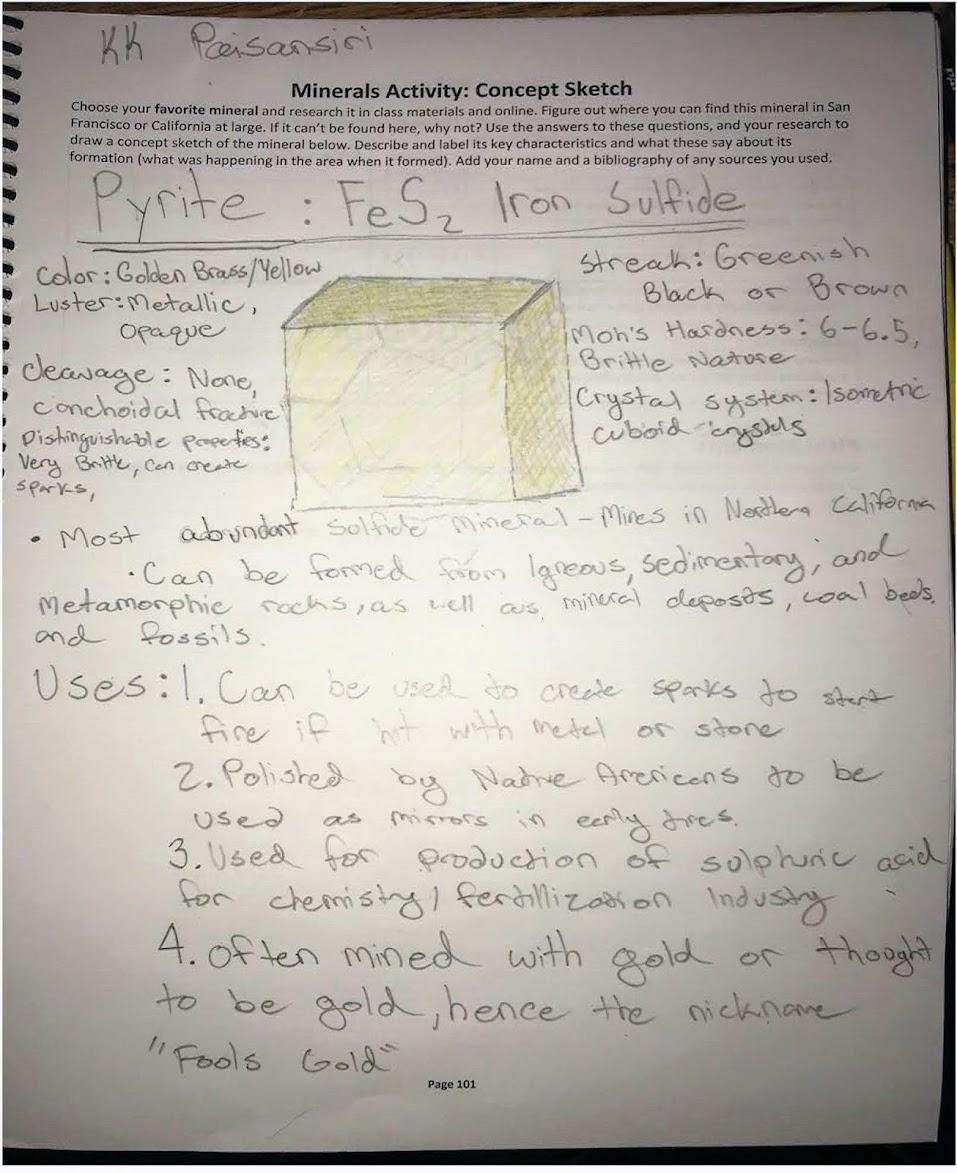 KK Paisansiri
Minerals Activity: Concept Sketch
Choose your favorite mineral and research it in class materials and online. Figure out where you can find this mineral in San
Francisco or California at large. If it can't be found here, why not? Use the answers to these questions, and your research to
draw a concept sketch of the mineral below. Describe and label its key characteristics and what these say about its
formation (what was happening in the area when it formed). Add your name and a bibliography of any sources you used.
Pyrite : FeS2 Iron Sulfide
Color: Golden Brass/Yellow
Luster: Metallic,
Opaque
Cleavage: None,
conchoidal fracture
Distinguishable properties:
Very Brittle, can create
sparks,
Streak: Greenish
Black or Brown
Moh's Hardness: 6-6.5,
Brittle Nature
Crystal system: Isometric
cuboid crystals
• Most abundant sulfide mineral - Mines in Northern California
• Can be formed from Igneous, sedimentary, and
Metamorphic rocks, as well as mineral deposits, coal beds,
and fossils.
Uses: 1. Can be used to create sparks to start
fire if hit with metal or stone
2. Polished by Native Americans to be
used as mirrors in early times.
3. Used for production of sulphuric acid
for chemistry / fertillization Industy
4. Often mined with gold or thought
to be gold, hence the nickname
"Fools Gold"
Page 101